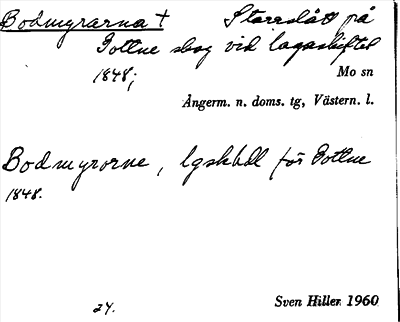 Bodmyrarna † Storslått på
Gottne skog vid lagaskiftet
1848;
Mo sn
Ångerm. n. doms. tg, Västern. l.
Bodmyrorne, lgsk hdl för Gottne
1848.
24.
Sven Hiller 1960